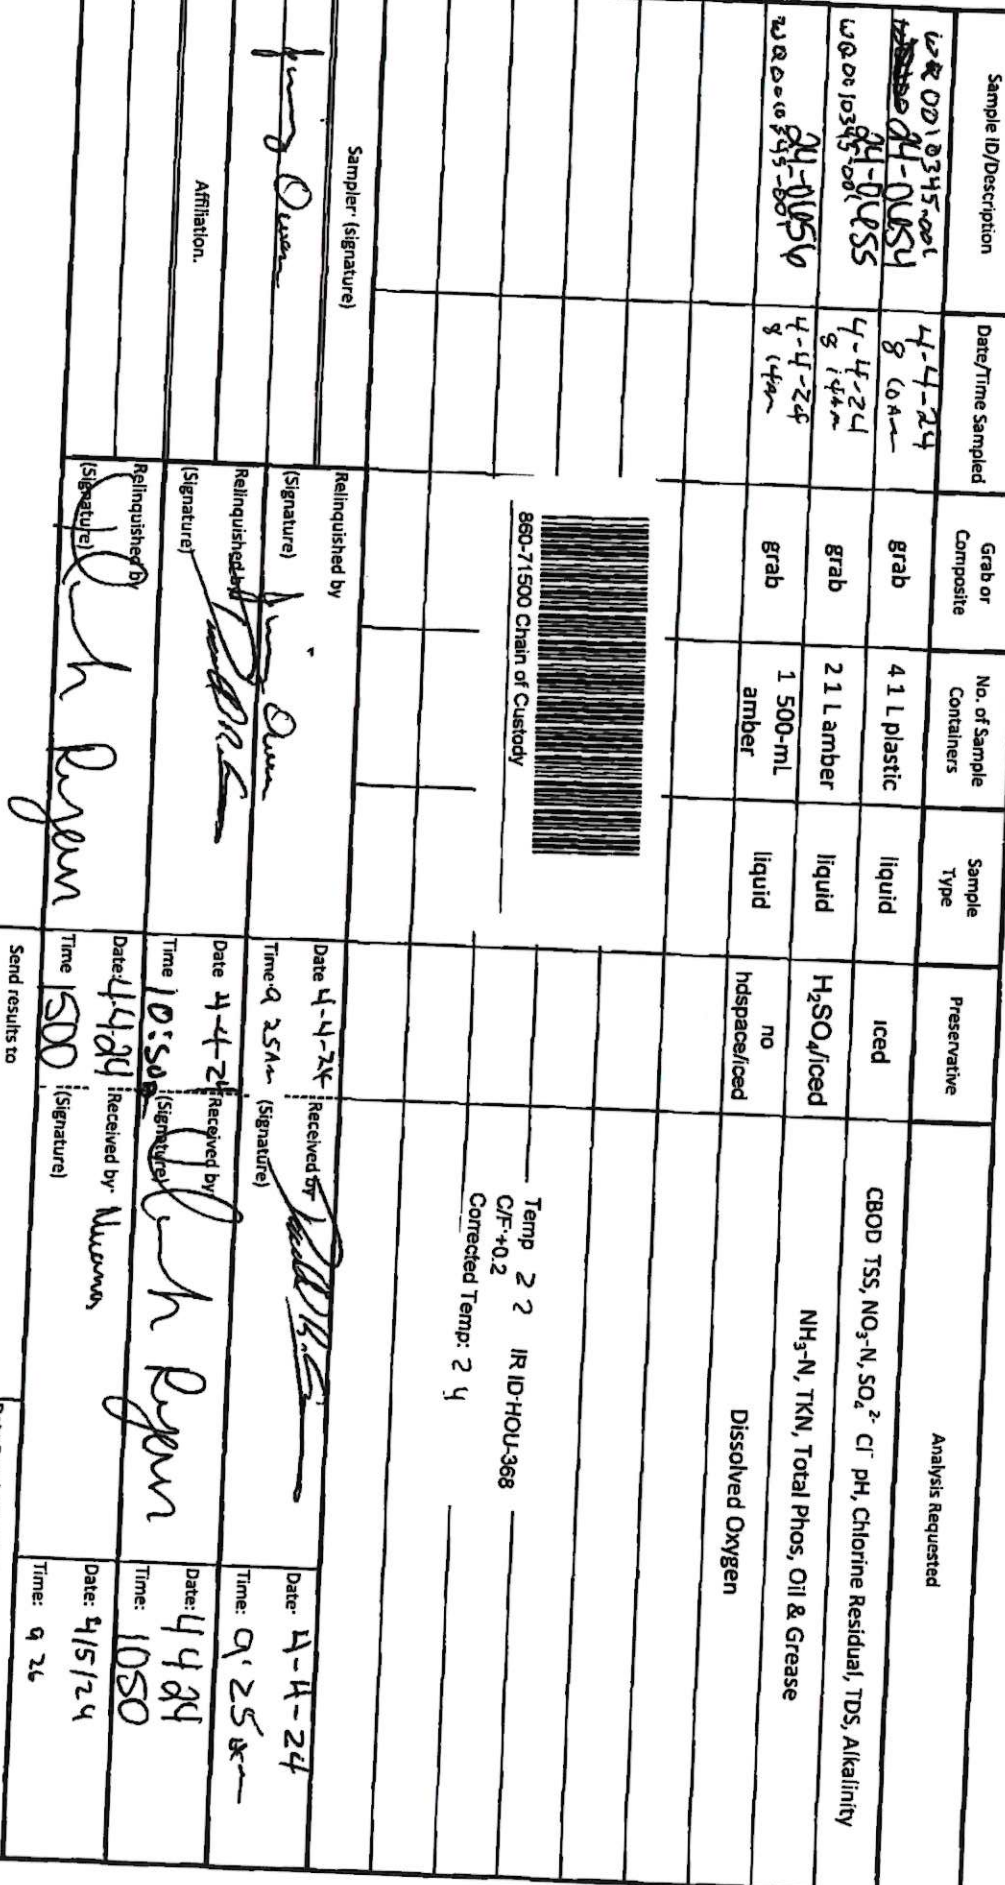 Sample ID/Description
Date/Time Sampled
Grab or Composite
No. of Sample Containers
Sample Type
Preservative
Analysis Requested
WQ0010345-001
24-01654
4-4-24
grab
4 1 L plastic
liquid
iced
CBOD TSS, NO₃-N, SO₄²⁻ Cl⁻ pH, Chlorine Residual, TDS, Alkalinity
WQ0010345-001
24-01655
4-4-24
8 14Am
grab
2 1 L amber
liquid
H₂SO₄/iced
NH₃-N, TKN, Total Phos, Oil & Grease
WQ0010345-001
24-01656
4-4-24
8 14Am
grab
1 500-mL
amber
liquid
no
hdspace/iced
Dissolved Oxygen
860-71500 Chain of Custody
Temp 2 2 IR ID-HOU-368
C/F +0.2
Corrected Temp: 2 4
Sampler (signature)
Relinquished by
(Signature)
Date 4-4-24
Time 9 25Am
Received by
(Signature)
Date 4-4-24
Time: 9:25
Owen
Owen
Affiliation.
Relinquished by
(Signature)
Date 4-4-24
Time 10:50
Received by
(Signature)
Ryan
Date: 4 4 24
Time: 1050
Relinquished by
(Signature)
Ryan
Date: 4-4-24
Time 1500
Received by
(Signature)
Date: 4/5/24
Time: 9 26
Send results to